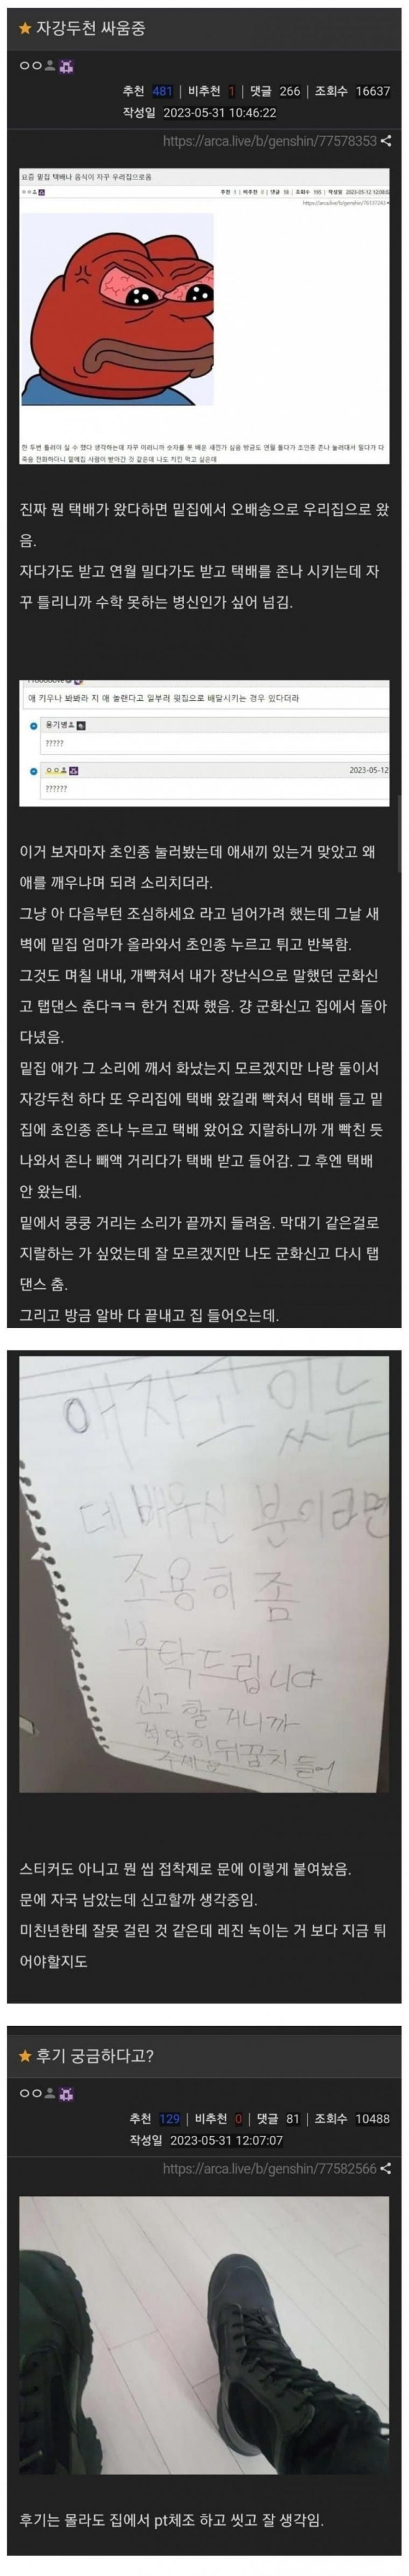 자강두천 싸움중
ㅇㅇ
추천 481 | 비추천 1 | 댓글 266 | 조회수 16637
작성일 2023-05-31 10:46:22
https://arca.live/b/genshin/77578353
요즘 밑집 택배나 음식이 자꾸 우리집으로옴
ㅇㅇ
한 두번 틀려야 실 수 했다 생각하는데 자꾸 이러니까 숫자를 못 배운 새낀가 싶음 방금도 연월 돌다가 초인종 존나 눌러대서 밀다가 다
죽음 전화하더니 밑에집 사람이 받아간 것 같은데 나도 치킨 먹고 싶은데
진짜 뭔 택배가 왔다하면 밑집에서 오배송으로 우리집으로 왔
음.
자다가도 받고 연월 밀다가도 받고 택배를 존나 시키는데 자
꾸 틀리니까 수학 못하는 병신인가 싶어 넘김.
애 키우나 봐봐라 지 애 놀랜다고 일부러 윗집으로 배달시키는 경우 있다더라
용기병
?????
ㅇㅇ 2023-05-12
??????
이거 보자마자 초인종 눌러봤는데 애새끼 있는거 맞았고 왜
애를 깨우냐며 되려 소리치더라.
그냥 아 다음부턴 조심하세요 라고 넘어가려 했는데 그날 새
벽에 밑집 엄마가 올라와서 초인종 누르고 튀고 반복함.
그것도 며칠 내내, 개빡쳐서 내가 장난식으로 말했던 군화신
고 탭댄스 춘다ㅋㅋ 한거 진짜 했음. 걍 군화신고 집에서 돌아
다녔음.
밑집 애가 그 소리에 깨서 화났는지 모르겠지만 나랑 둘이서
자강두천 하다 또 우리집에 택배 왔길래 빡쳐서 택배 들고 밑
집에 초인종 존나 누르고 택배 왔어요 지랄하니까 개 빡친 듯
나와서 존나 빼액 거리다가 택배 받고 들어감. 그 후엔 택배
안 왔는데.
밑에서 쿵쿵 거리는 소리가 끝까지 들려옴. 막대기 같은걸로
지랄하는 가 싶었는데 잘 모르겠지만 나도 군화신고 다시 탭
댄스 춤.
그리고 방금 알바 다 끝내고 집 들어오는데.
애 자고 있는
데 배우신 분이라면
조용히 좀
부탁드립니다
신고 할 거니까
적당히 뒤꿈치 들어
주세요
스티커도 아니고 뭔 씹 접착제로 문에 이렇게 붙여놨음.
문에 자국 남았는데 신고할까 생각중임.
미친년한테 잘못 걸린 것 같은데 레진 녹이는 거 보다 지금 튀
어야할지도
후기 궁금하다고?
ㅇㅇ
추천 129 | 비추천 0 | 댓글 81 | 조회수 10488
작성일 2023-05-31 12:07:07
https://arca.live/b/genshin/77582566
후기는 몰라도 집에서 pt체조 하고 씻고 잘 생각임.